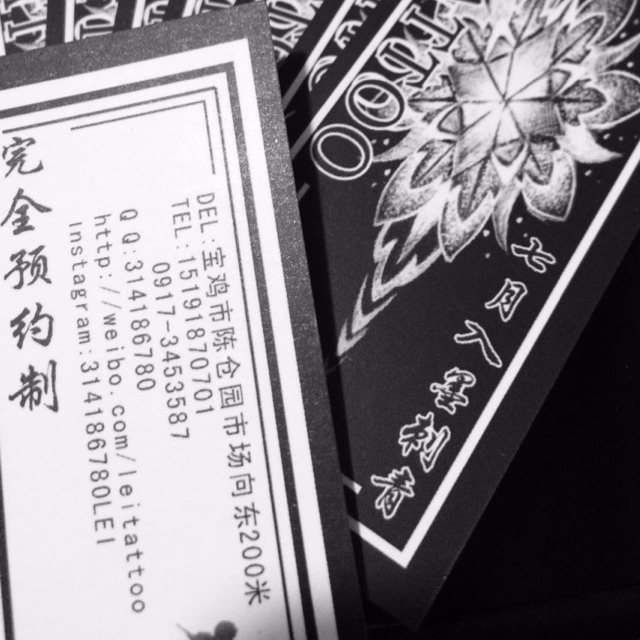 完全预约制
DEL:宝鸡市陈仓园市场向东200米
TEL:15191870701
0917-3453587
QQ:314186780
http://weibo.com/leitattoo
Instagram:314186780LEI
七月入墨刺青